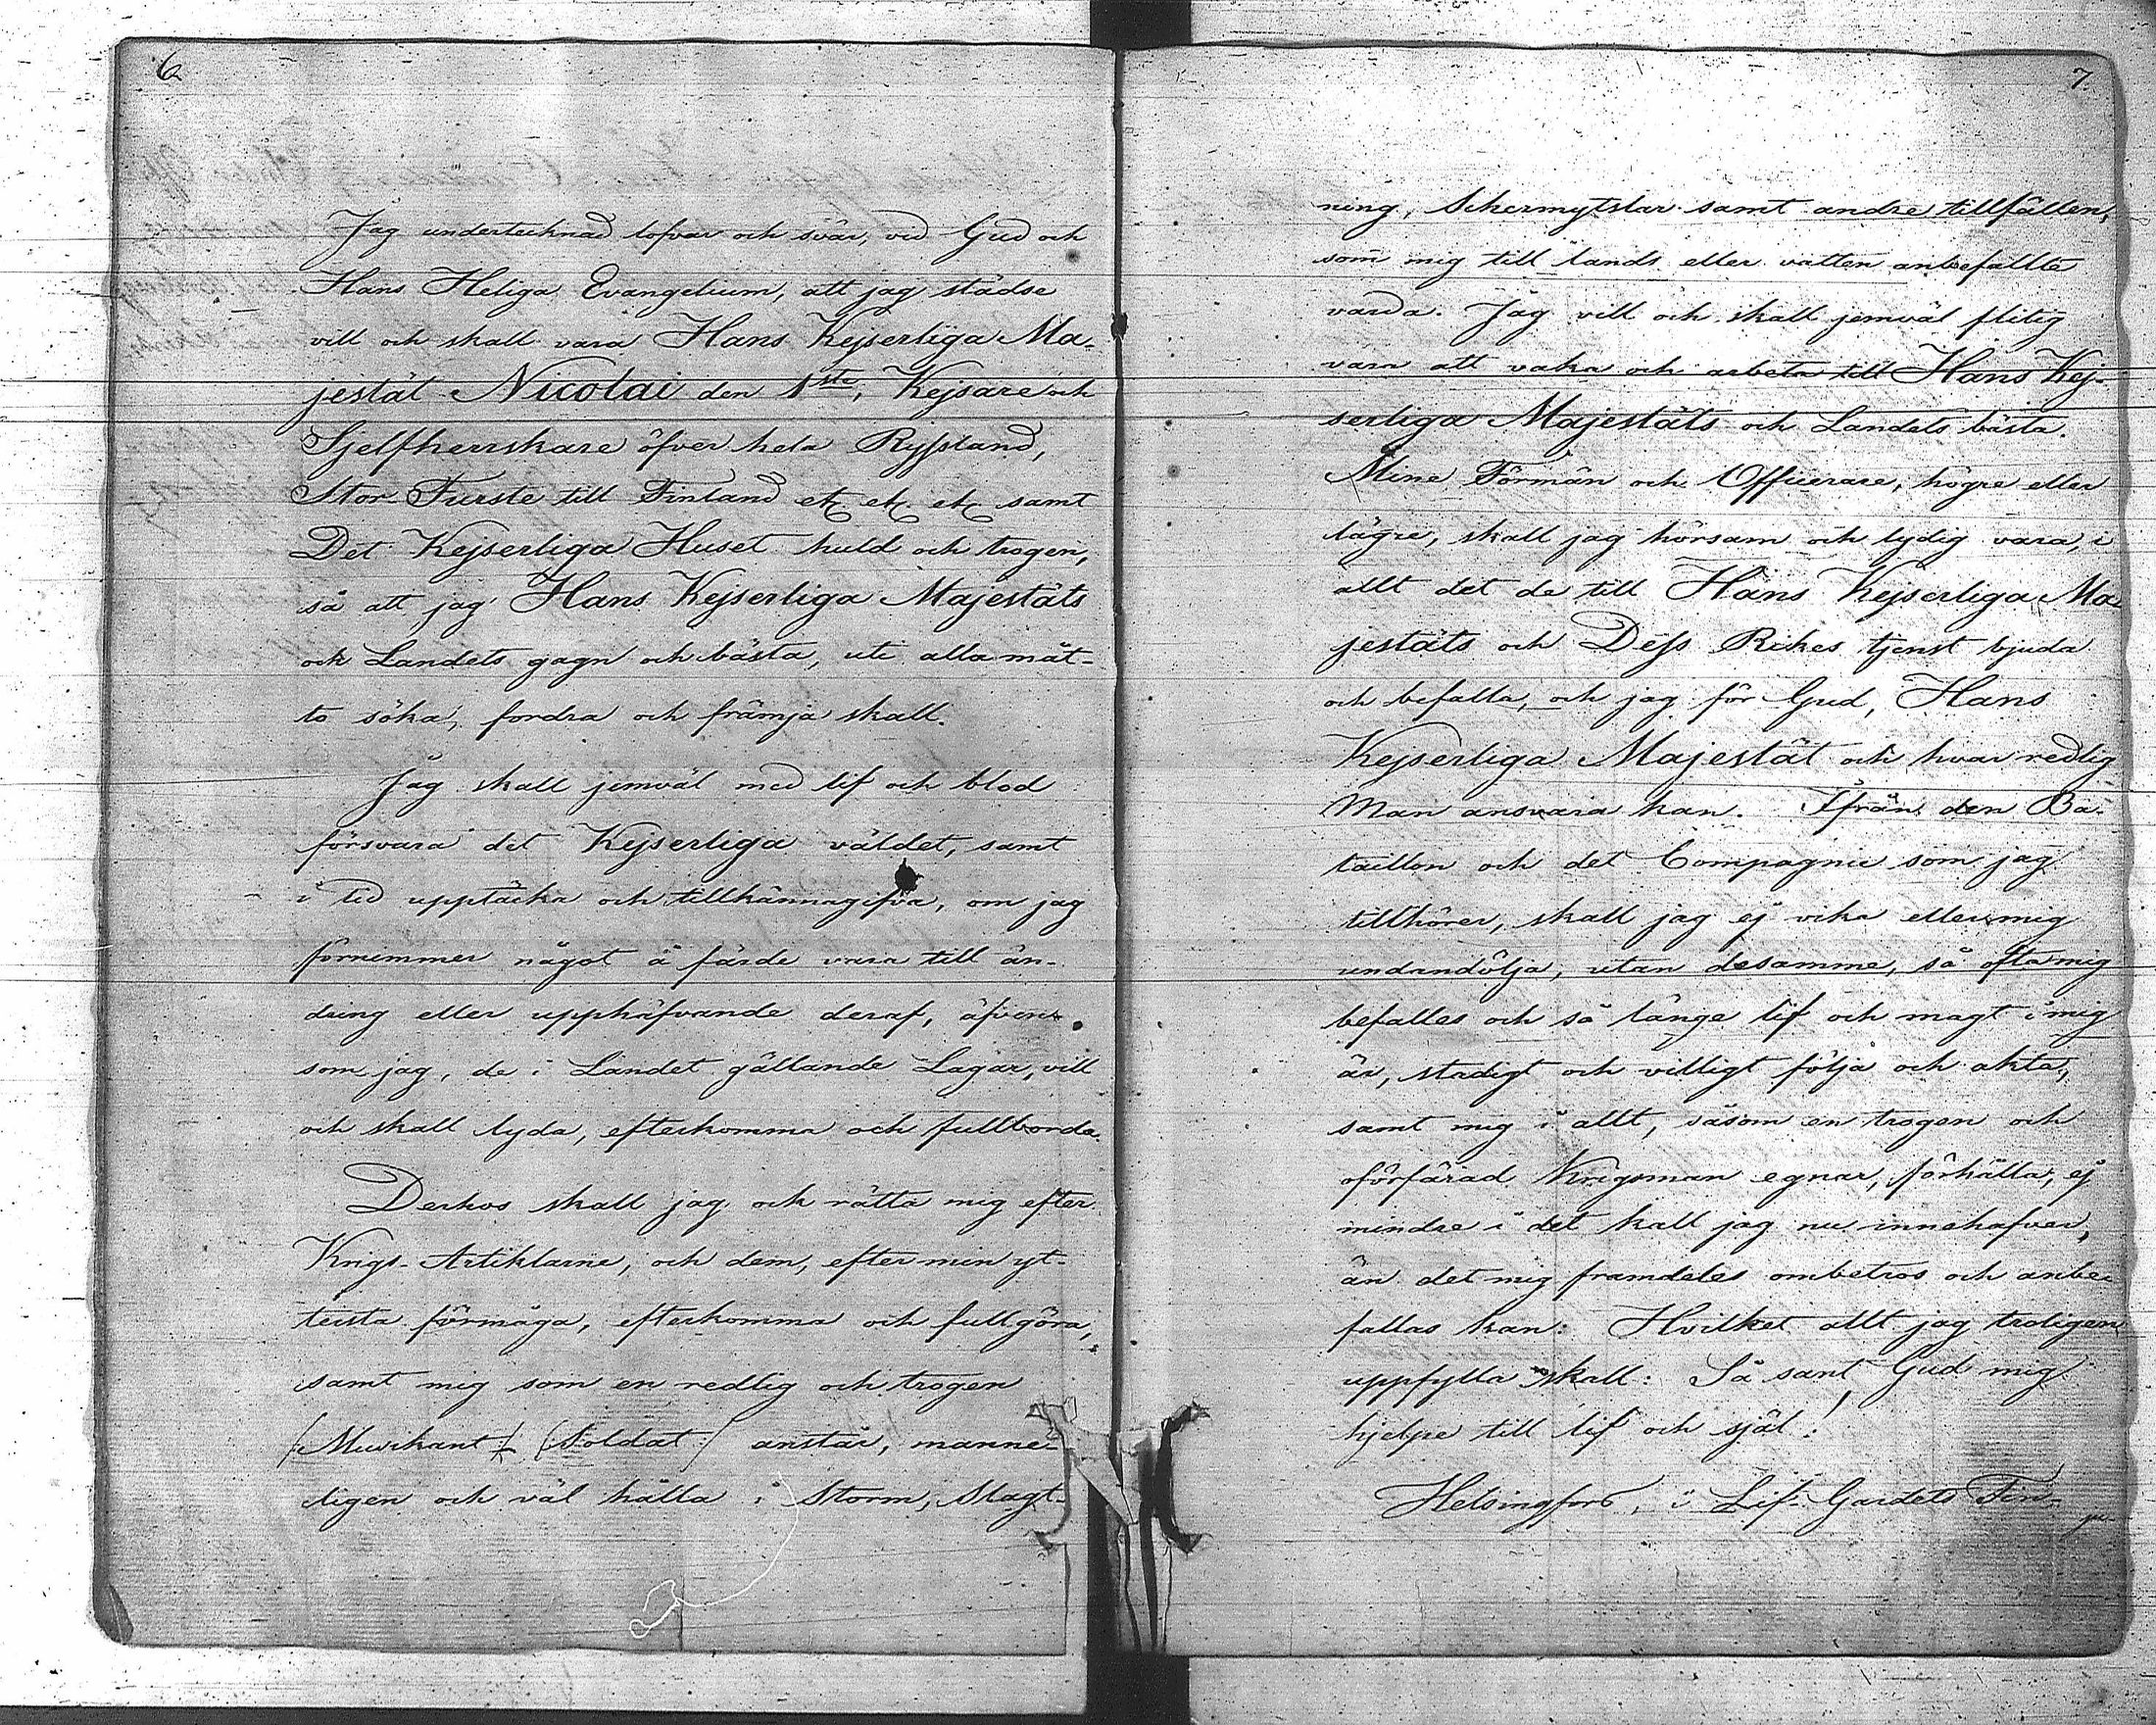 6
Jag undertecknad lofvar och svär, vid Gud och
Hans Heliga Evangelium, att jag städse
vill och skall vara Hans Kejserliga Ma-
jestät Nicolai den 1ste, Kejsare och
Sjelfherrskare öfver hela Ryssland,
Stor Furste till Finland etc etc etc samt
Det Kejserliga Huset huld och trogen,
så att jag Hans Kejserliga Majestäts
och Landets gagn och bästa, uti alla måt-
to söka, fordra och främja skall.
Jag skall jemväl med lif och blod
försvara det Kejserliga väldet, samt
i tid upptäcka och tillkännagifva, om jag
förnimmer något å färde vara till än-
dring eller upphäfvande deraf, äfven
som jag, de i Landet gällande Lagar, vill
och skall lyda, efterkomma och fullborda.
Derhos skall jag och rätta mig efter
Krigs-Artiklarne, och dem, efter min yt-
tersta förmåga, efterkomma och fullgöra,
samt mig som en redlig och trogen
(Musikant) (Soldat) anstår, manne-
ligen och väl hålla i Storm, Slagt-
7.
ning, Schermytslar samt andre tillfällen,
som mig till lands eller vatten anbefallte
varda. Jag vill och skall jemväl flitig
vara att vaka och arbeta till Hans Kej-
serliga Majestäts och Landets bästa.
Mine Förmän och Officerare, högre eller
lägre, skall jag hörsam och lydig vara, i
allt det de till Hans Kejserliga Ma-
jestäts och Dess Rikes tjenst bjuda
och befalla, och jag för Gud, Hans
Kejserliga Majestät och hvar redlig
Man ansvara kan. Ifrån den Ba-
taillon och det Compagnie som jag
tillhörer, skall jag ej vika eller mig
undandölja, utan desamme, så ofta mig
befalles och så länge lif och magt i mig
är, stadigt och villigt följa och akta,
samt mig i allt, såsom en trogen och
oförfärad Krigsman egnar, förhålla, ej
mindre i det kall jag nu innehafver,
än det mig framdeles ombetros och anbe-
fallas kan: Hvilket allt jag troligen
uppfylla skall: Så sant Gud mig
hjelpe till lif och själ!
Helsingfors, i Lif-Gardets Fin-